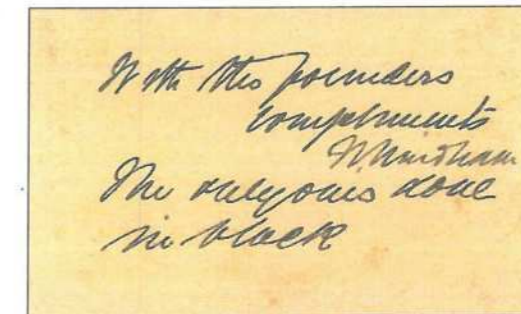 With the founders
compliments
The only ones done
in black